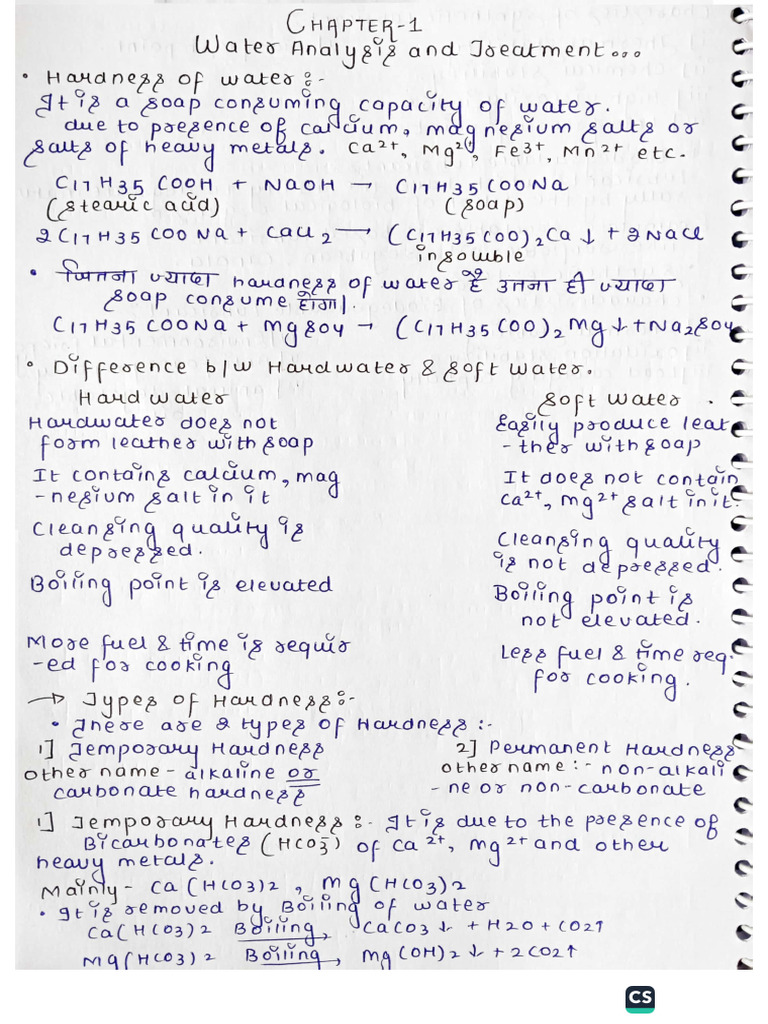 CHAPTER-1
Water Analysis and Treatment...
• Hardness of water :-
It is a soap consuming capacity of water.
due to presence of calcium, magnesium salts or
salts of heavy metals. Ca2+, Mg2+, Fe3+, Mn2+ etc.
C17H35COOH + NaOH → C17H35COONa
(Stearic acid) (Soap)
2C17H35COONa + CaCl2 → (C17H35COO)2Ca ↓ + 2NaCl
insoluble
• जितना ज्यादा hardness of water है उतना ही ज्यादा
soap consume होगा।
C17H35COONa + MgSO4 → (C17H35COO)2Mg↓+Na2SO4
• Difference b/w Hardwater & Soft water.
Hardwater Soft water .
Hardwater does not Easily produce leat
form leather with soap -ther with soap
It contains calcium, mag It does not contain
-nesium salt in it Ca2+, Mg2+ salt in it.
Cleansing quality is Cleansing quality
depressed. is not depressed.
Boiling point is elevated Boiling point is
not elevated.
More fuel & time is requir Less fuel & time req.
-ed for cooking for cooking.
→ Types of Hardness:-
• There are 2 types of Hardness :-
1] Temporary Hardness 2] Permanent Hardness
other name - alkaline or other name :- non-alkali
carbonate hardness -ne or non-carbonate
1] Temporary Hardness :- It is due to the presence of
Bicarbonates (HCO3-) of Ca2+, Mg2+ and other
heavy metals.
Mainly - Ca(HCO3)2 , Mg(HCO3)2
• It is removed by Boiling of water
Ca(HCO3)2 Boiling→ CaCO3 ↓ + H2O + CO2↑
Mg(HCO3)2 Boiling→ Mg(OH)2 ↓ + 2CO2↑
CS